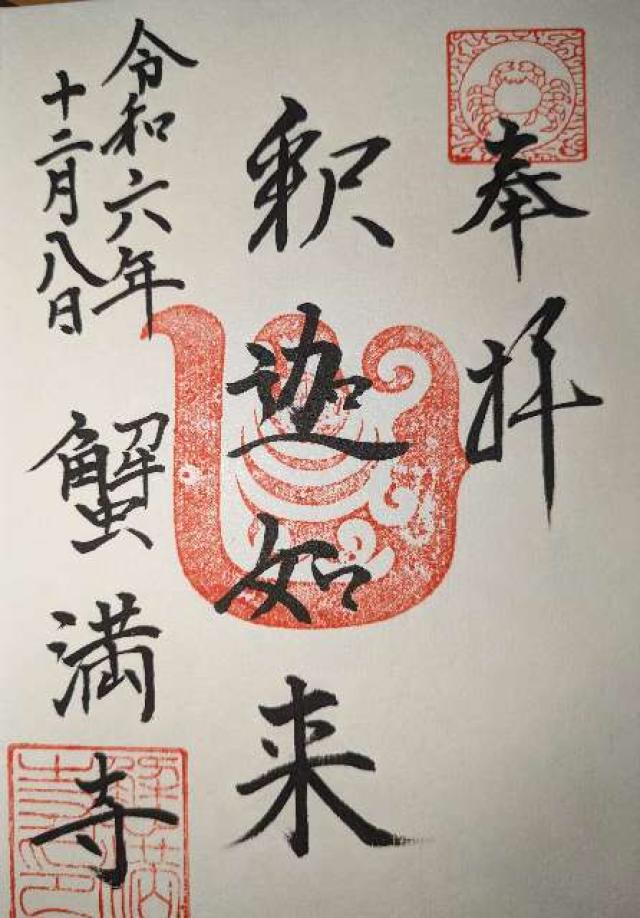 奉拝
釈迦如来
令和六年
十二月八日
蟹満寺